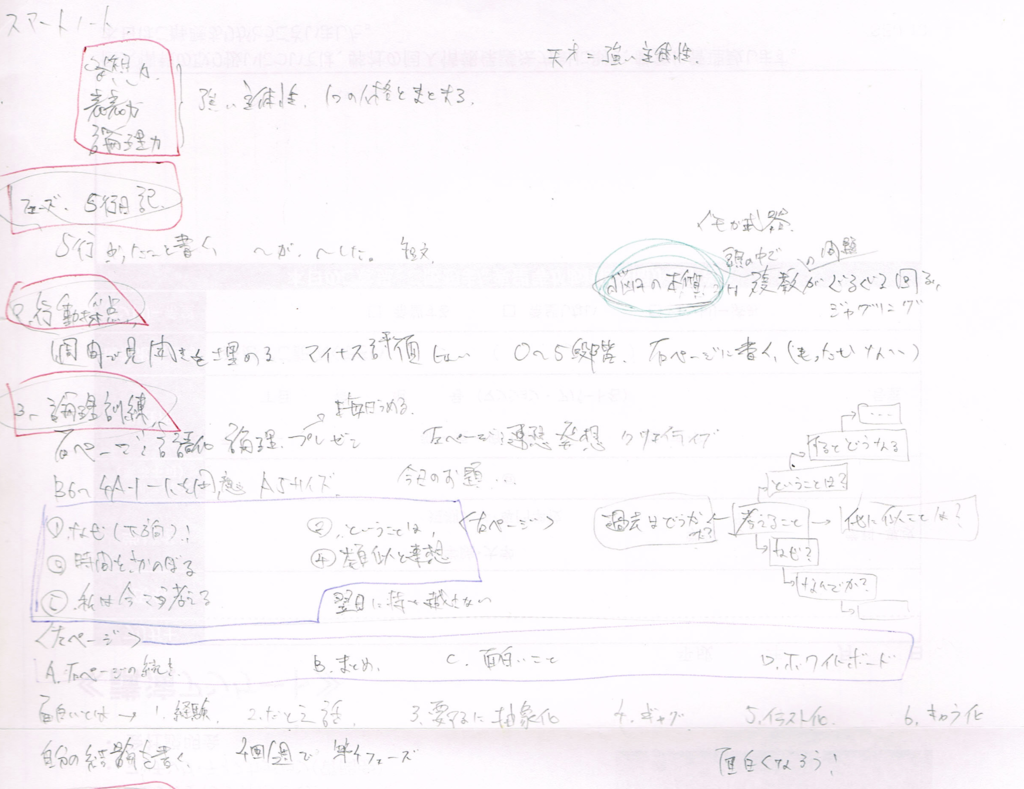 スマートノート
天才に強い主体性.
発想力
表現力
論理力
強い主体性. 1つの人格とまとまる.
フェーズ. 5行日記.
5行 あったこと書く. ~が、~した。 短文
メモが武器.
脳内の本質
頭の中で
複数がぐるぐる回る,
の問題
ジャグリング
2. 行動採点
1週間で見開きを埋める. マイナス評価 0~5段階. 右ページに書く,
3. 論理訓練
毎日うめる.
右ページ 論理. プレゼン 左ページ: 連想 発想 クリエイティブ
B6 を用意 A5サイズ. 今日のお題...
...
するとどうなる
ということは?
過去はどうだった? 考えること 他に似たことは?
なぜ?
なんでか?
<右ページ>
① なぜ(下向)! ② ということは,
③ 時間をさかのぼる ④ 類似と連想
⑤ 私は今こう考える
翌日に持ち越さない
<左ページ>
A. 右ページの続き. B. まとめ. C. 面白いこと D. ホワイトボード
面白いとは → 1. 経験. 2. たとえ話. 3. 要するに 抽象化 4. ギャグ 5. イラスト化. 6. キャラ化
自分の結論を書く. 4回/週で 半年フェーズ
面白くなろう!